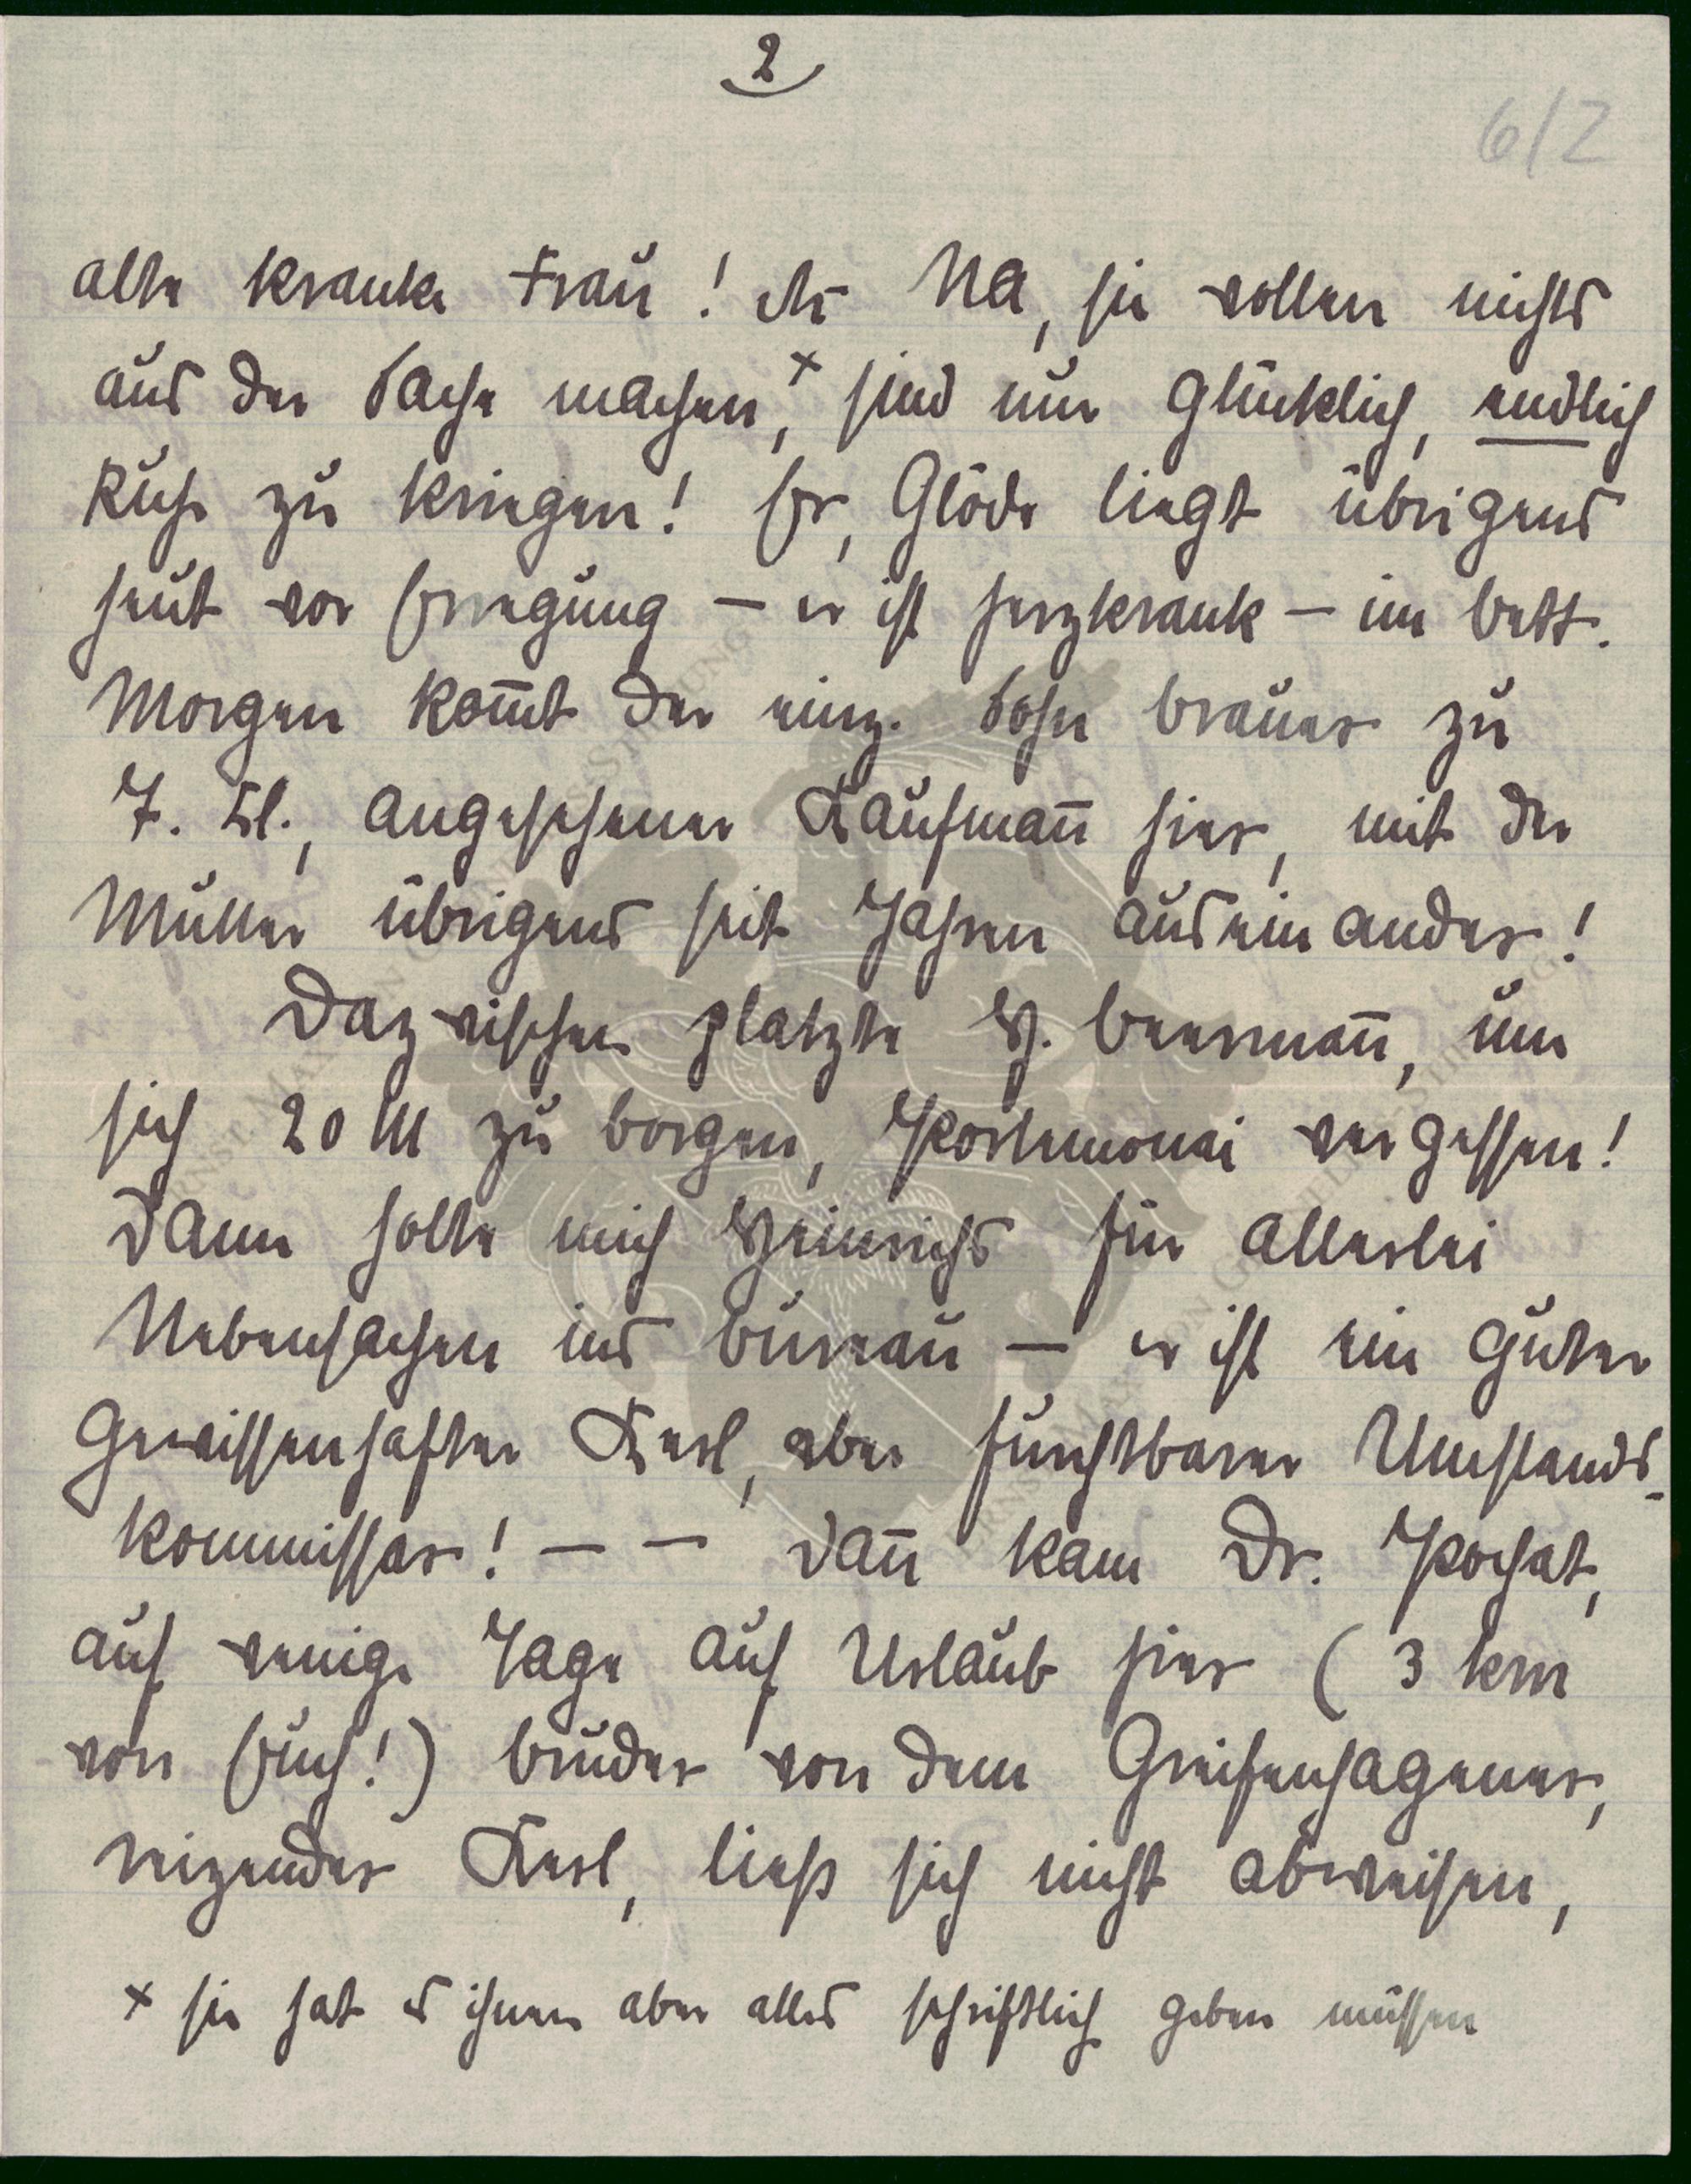 2
6/2
alte kranke Frau! Na, sie wollen nichts
aus der Sache machen,× sind nur glücklich, endlich
Ruhe zu kriegen! Er, Glöde liegt übrigens
heut vor Erregung – er ist herzkrank – im Bett.
Morgen kom̅t der einz. Sohn Brauer zu
T. El., angesehener Kaufman̅ hier, mit der
Mutter übrigens seit Jahren auseinander!
Dazwischen platzte H. Beerman̅, um
sich 20 M zu borgen, Portemonai vergessen!
Dann holte mich Heinrichs für allerlei
Nebensachen ins Bureau – er ist ein guter
gewissenhafter Kerl, aber furchtbarer Umstands-
kommissar! – – Dan̅ kam Dr. Pochat,
auf wenige Tage auf Urlaub hier (3 km
von Euch!) Bruder von dem Greifenhagener,
reizender Kerl, ließ sich nicht abweisen,
× sie hat es ihnen aber alles schriftlich geben müssen